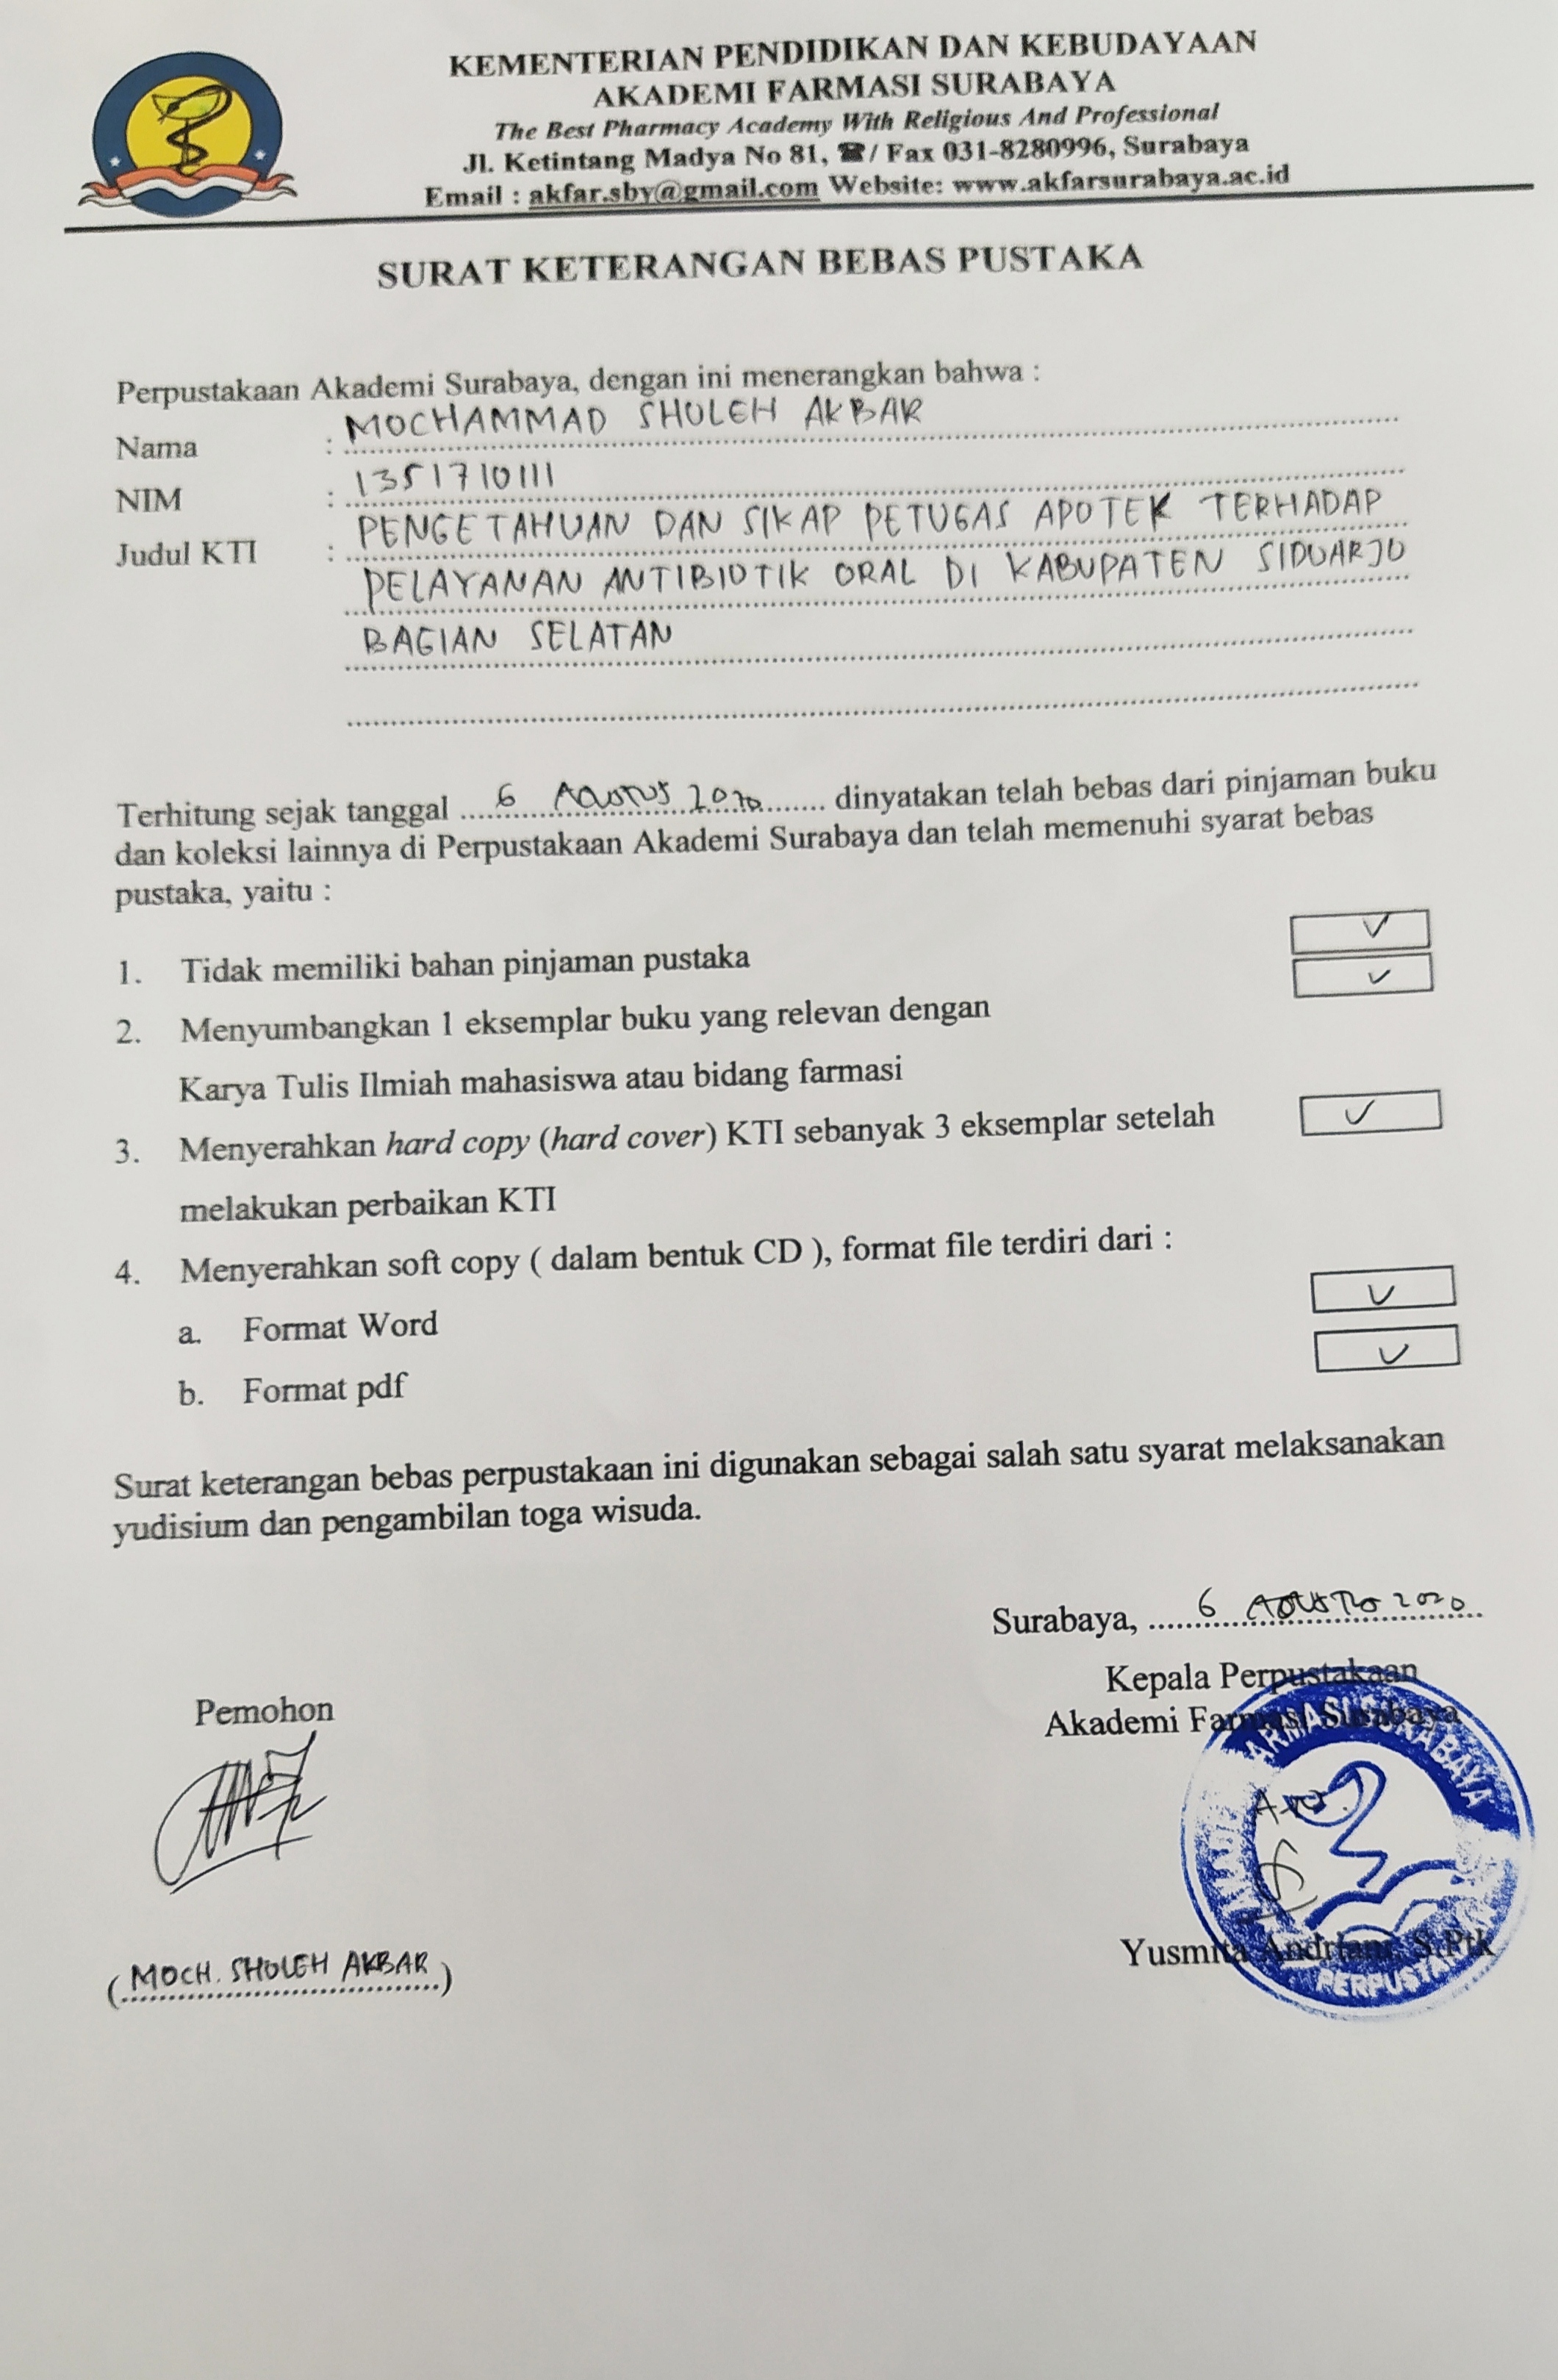 KEMENTERIAN PENDIDIKAN DAN KEBUDAYAAN
AKADEMI FARMASI SURABAYA
The Best Pharmacy Academy With Religious And Professional
Jl. Ketintang Madya No 81, ☎/ Fax 031-8280996, Surabaya
Email : akfar.sby@gmail.com Website: www.akfarsurabaya.ac.id
SURAT KETERANGAN BEBAS PUSTAKA
Perpustakaan Akademi Surabaya, dengan ini menerangkan bahwa :
Nama : MOCHAMMAD SHOLEH AKBAR
NIM : 1351710111
Judul KTI : PENGETAHUAN DAN SIKAP PETUGAS APOTEK TERHADAP
PELAYANAN ANTIBIOTIK ORAL DI KABUPATEN SIDOARJO
BAGIAN SELATAN
Terhitung sejak tanggal 6 Agustus 2020 dinyatakan telah bebas dari pinjaman buku
dan koleksi lainnya di Perpustakaan Akademi Surabaya dan telah memenuhi syarat bebas
pustaka, yaitu :
1. Tidak memiliki bahan pinjaman pustaka ✓
✓
2. Menyumbangkan 1 eksemplar buku yang relevan dengan
Karya Tulis Ilmiah mahasiswa atau bidang farmasi
3. Menyerahkan hard copy (hard cover) KTI sebanyak 3 eksemplar setelah ✓
melakukan perbaikan KTI
4. Menyerahkan soft copy ( dalam bentuk CD ), format file terdiri dari :
a. Format Word ✓
b. Format pdf ✓
Surat keterangan bebas perpustakaan ini digunakan sebagai salah satu syarat melaksanakan
yudisium dan pengambilan toga wisuda.
Surabaya, 6 Agustus 2020
Kepala Perpustakaan
Pemohon
Akademi Farmasi Surabaya
FARMASI SURABAYA
Yusmita Andriani, S.Ptk
(MOCH. SHOLEH AKBAR)